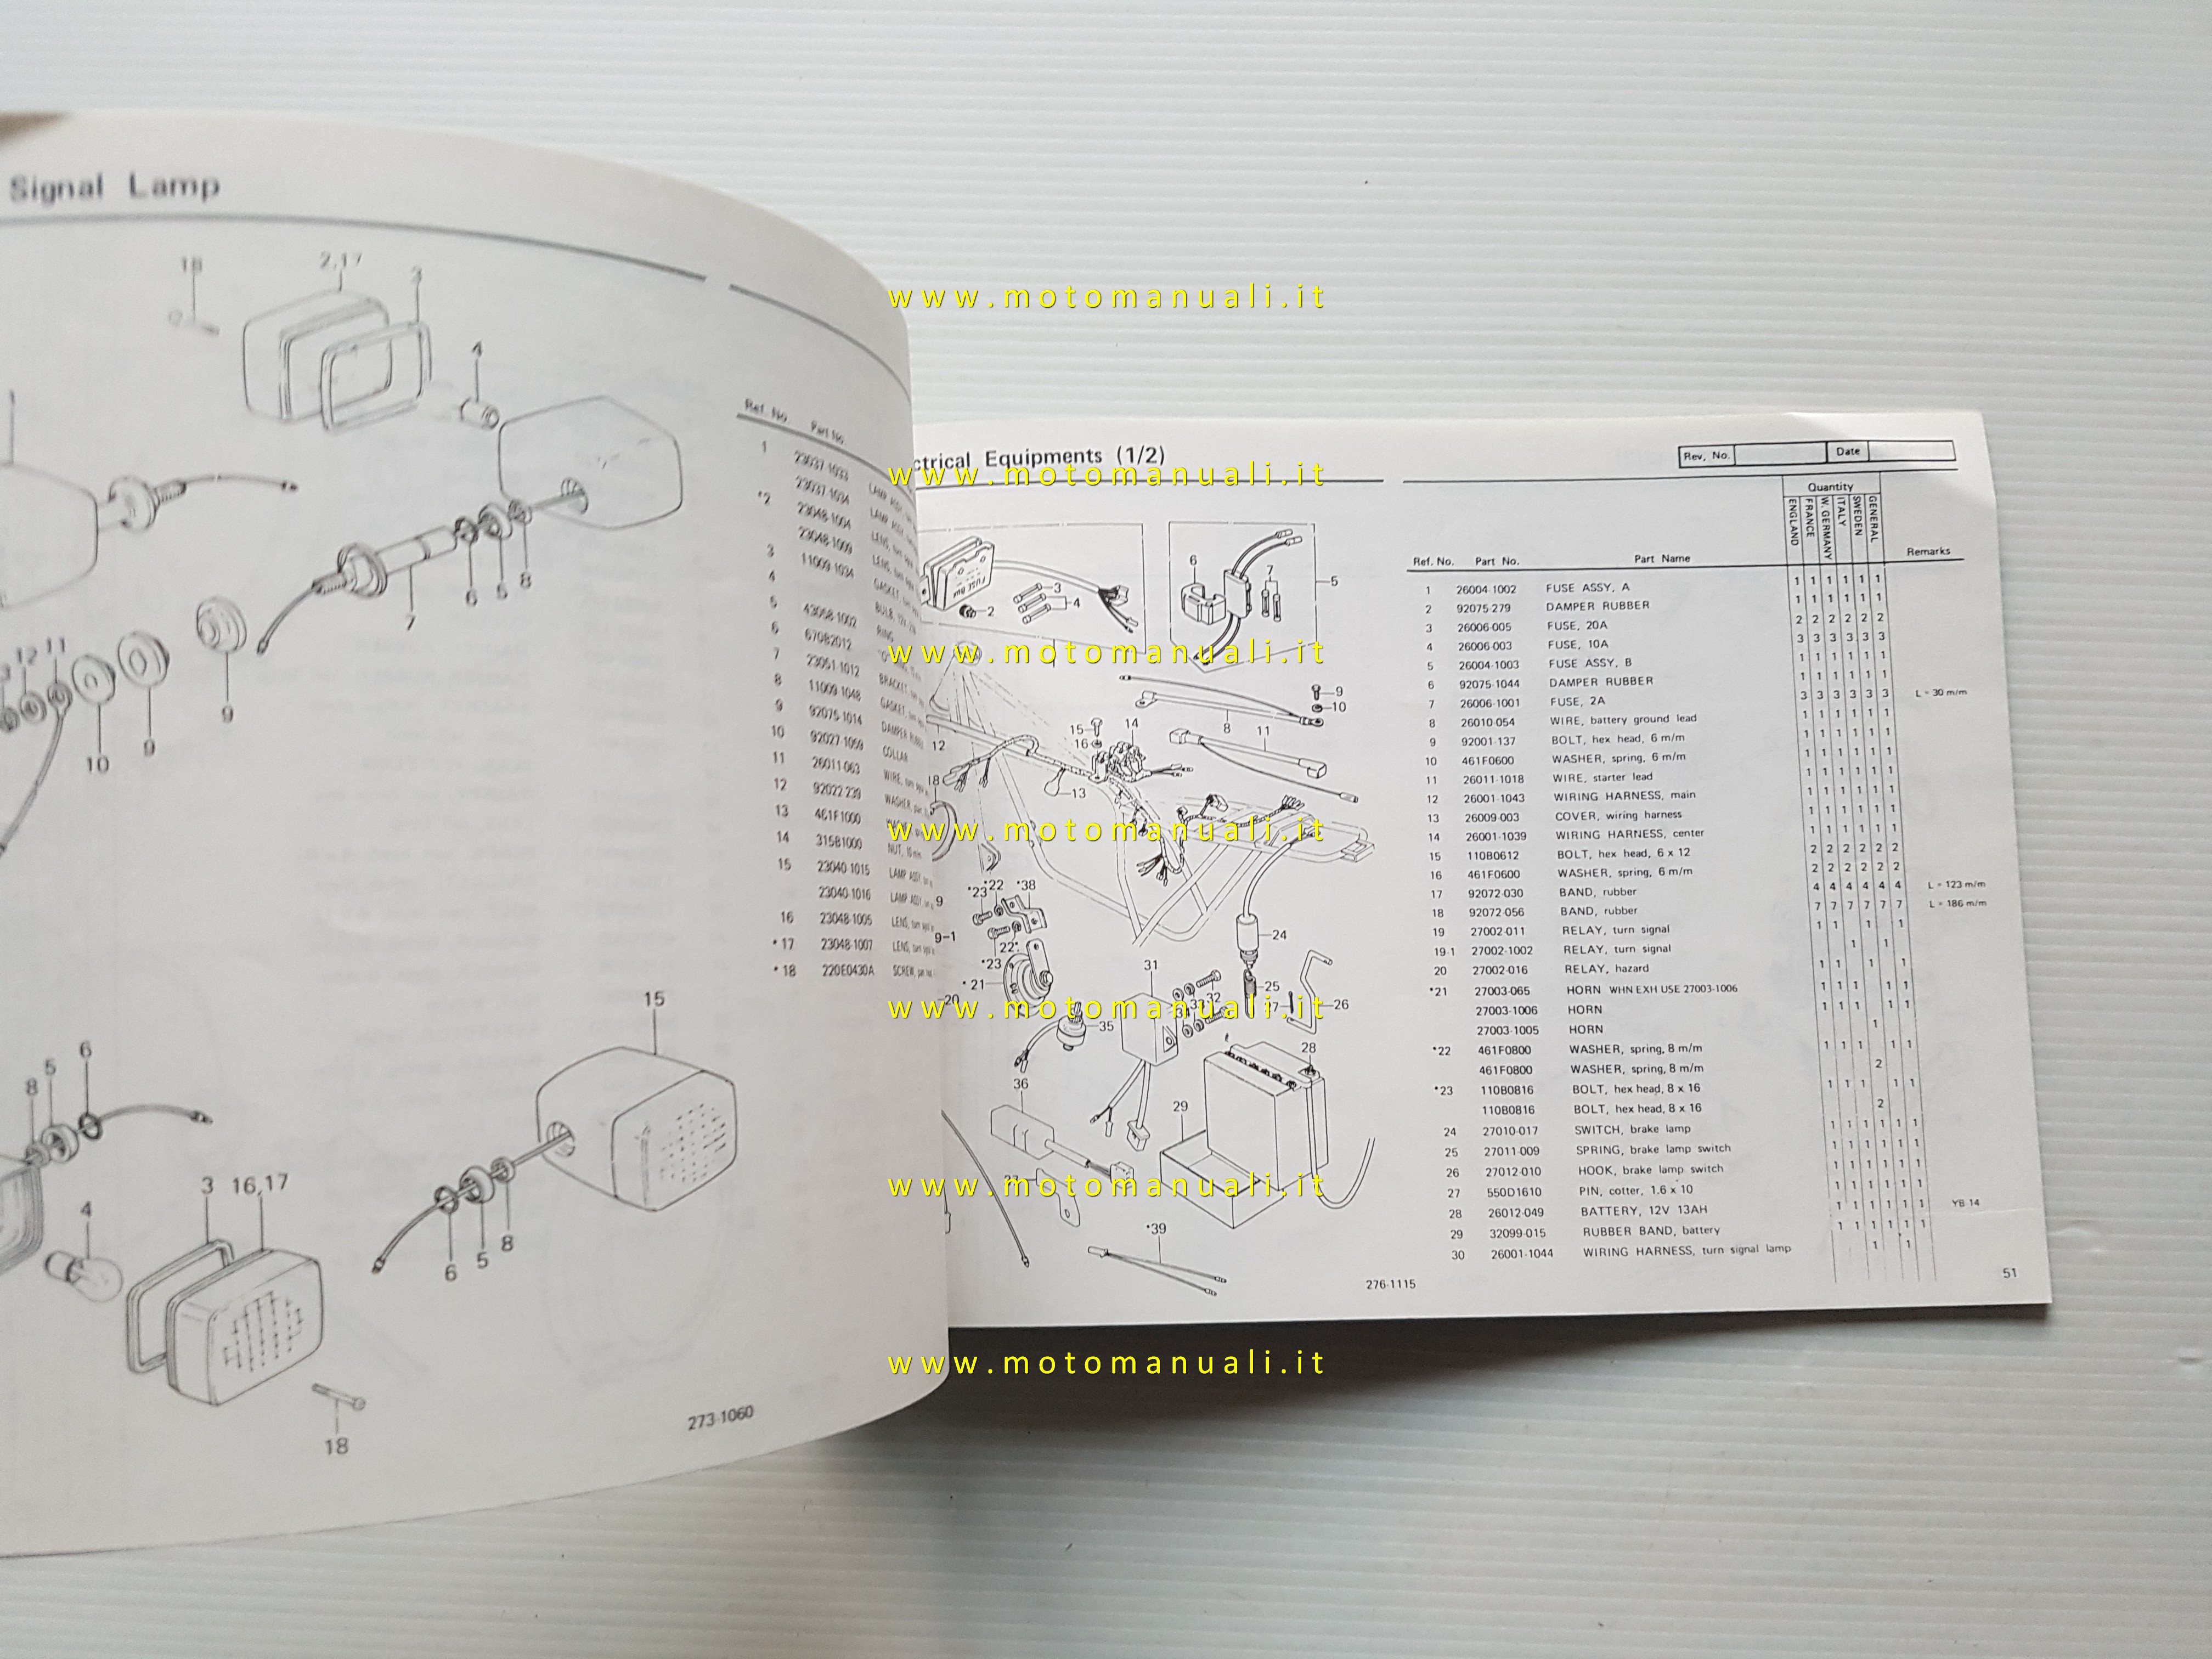 Signal Lamp
18
2,17
3
4
6
5
8
7
9
11
12
10
9
Ref. No. Part No.
1 23037-1033
23037-1034
*2 23048-1004
23048-1009
3 11009-1034
4
5 43058-1002
6 670B2012
7 23051-1012
8 11009-1048
9 92075-1014
10 92027-1059 COLLAR
11 26011-063
12 92022-239
13 461F1000
14 315B1000
15 23040-1015
23040-1016
16 23048-1005
*17 23048-1007
*18 220E0430A
15
6
5
8
3 16,17
4
8
5
6
18
273-1060
ctrical Equipments (1/2)
Rev. No. Date
Quantity
ENGLAND FRANCE W. GERMANY ITALY SWEDEN GENERAL
Ref. No. Part No. Part Name Remarks
1 26004-1002 FUSE ASSY, A 1 1 1 1 1 1
2 92075-279 DAMPER RUBBER 1 1 1 1 1 1
3 26006-005 FUSE, 20A 2 2 2 2 2 2
4 26006-003 FUSE, 10A 3 3 3 3 3 3
5 26004-1003 FUSE ASSY, B 1 1 1 1 1 1
6 92075-1044 DAMPER RUBBER 1 1 1 1 1 1
7 26006-1001 FUSE, 2A 3 3 3 3 3 3 L = 30 m/m
8 26010-054 WIRE, battery ground lead 1 1 1 1 1 1
9 92001-137 BOLT, hex head, 6 m/m 1 1 1 1 1 1
10 461F0600 WASHER, spring, 6 m/m 1 1 1 1 1 1
11 26011-1018 WIRE, starter lead 1 1 1 1 1 1
12 26001-1043 WIRING HARNESS, main 1 1 1 1 1 1
13 26009-003 COVER, wiring harness 1 1 1 1 1 1
14 26001-1039 WIRING HARNESS, center 1 1 1 1 1 1
15 110B0612 BOLT, hex head, 6 x 12 2 2 2 2 2 2
16 461F0600 WASHER, spring, 6 m/m 2 2 2 2 2 2
17 92072-030 BAND, rubber 4 4 4 4 4 4 L = 123 m/m
18 92072-056 BAND, rubber 7 7 7 7 7 7 L = 186 m/m
19 27002-011 RELAY, turn signal 1 1 1 1
19-1 27002-1002 RELAY, turn signal 1 1
20 27002-016 RELAY, hazard 1 1 1 1
*21 27003-065 HORN WHN EXH USE 27003-1006 1 1 1 1 1
27003-1006 HORN 1 1 1 1 1
27003-1005 HORN 1
*22 461F0800 WASHER, spring, 8 m/m 1 1 1 1 1
461F0800 WASHER, spring, 8 m/m 2
*23 110B0816 BOLT, hex head, 8 x 16 1 1 1 1 1
110B0816 BOLT, hex head, 8 x 16 2
24 27010-017 SWITCH, brake lamp 1 1 1 1 1 1
25 27011-009 SPRING, brake lamp switch 1 1 1 1 1 1
26 27012-010 HOOK, brake lamp switch 1 1 1 1 1 1
27 550D1610 PIN, cotter, 1.6 x 10 1 1 1 1 1 1
28 26012-049 BATTERY, 12V 13AH 1 1 1 1 1 1 YB-14
29 32099-015 RUBBER BAND, battery 1 1 1 1 1 1
30 26001-1044 WIRING HARNESS, turn signal lamp 1 1
FUSE
3
2
4
6
7
5
9
10
8
15
14
11
16
12
13
18
*22
*38
*23
9
9-1
22
*23
24
31
*21
25
20
26
35
28
36
29
*39
276-1115
51
www.motomanuali.it
www.motomanuali.it
www.motomanuali.it
www.motomanuali.it
www.motomanuali.it
www.motomanuali.it
www.motomanuali.it